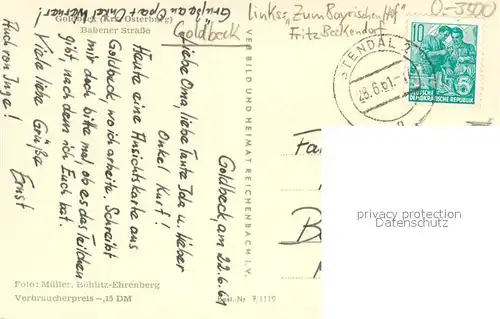 Goldbeck (Krs. Osterburg)
Babener Straße
Goldbeck
Links: "Zum Bayrischen Hof"
Fritz Beckendorf
O-3500
Goldbeck, am 22.6.61
Liebe Oma, liebe Tante Ida u. lieber
Onkel Kurt!
Heute eine Ansichtskarte aus
Goldbeck, wo ich arbeite. Schreibt
mir doch bitte mal, ob es das Teilchen
gibt, nach dem ich Euch bat.
Viele liebe Grüße
Ernst
Auch von Inge!
Grüße an Opa + Onkel Werner!
VERBILD UND HEIMAT REICHENBACH I. V.
STENDAL 2
28.6.61
10
5
DEUTSCHE
DEMOKRATISCHE REPUBLIK
privacy protection
Datenschutz
Foto: Müller, Böhlitz-Ehrenberg
Verbraucherpreis -,15 DM
Best.-Nr 7/1119